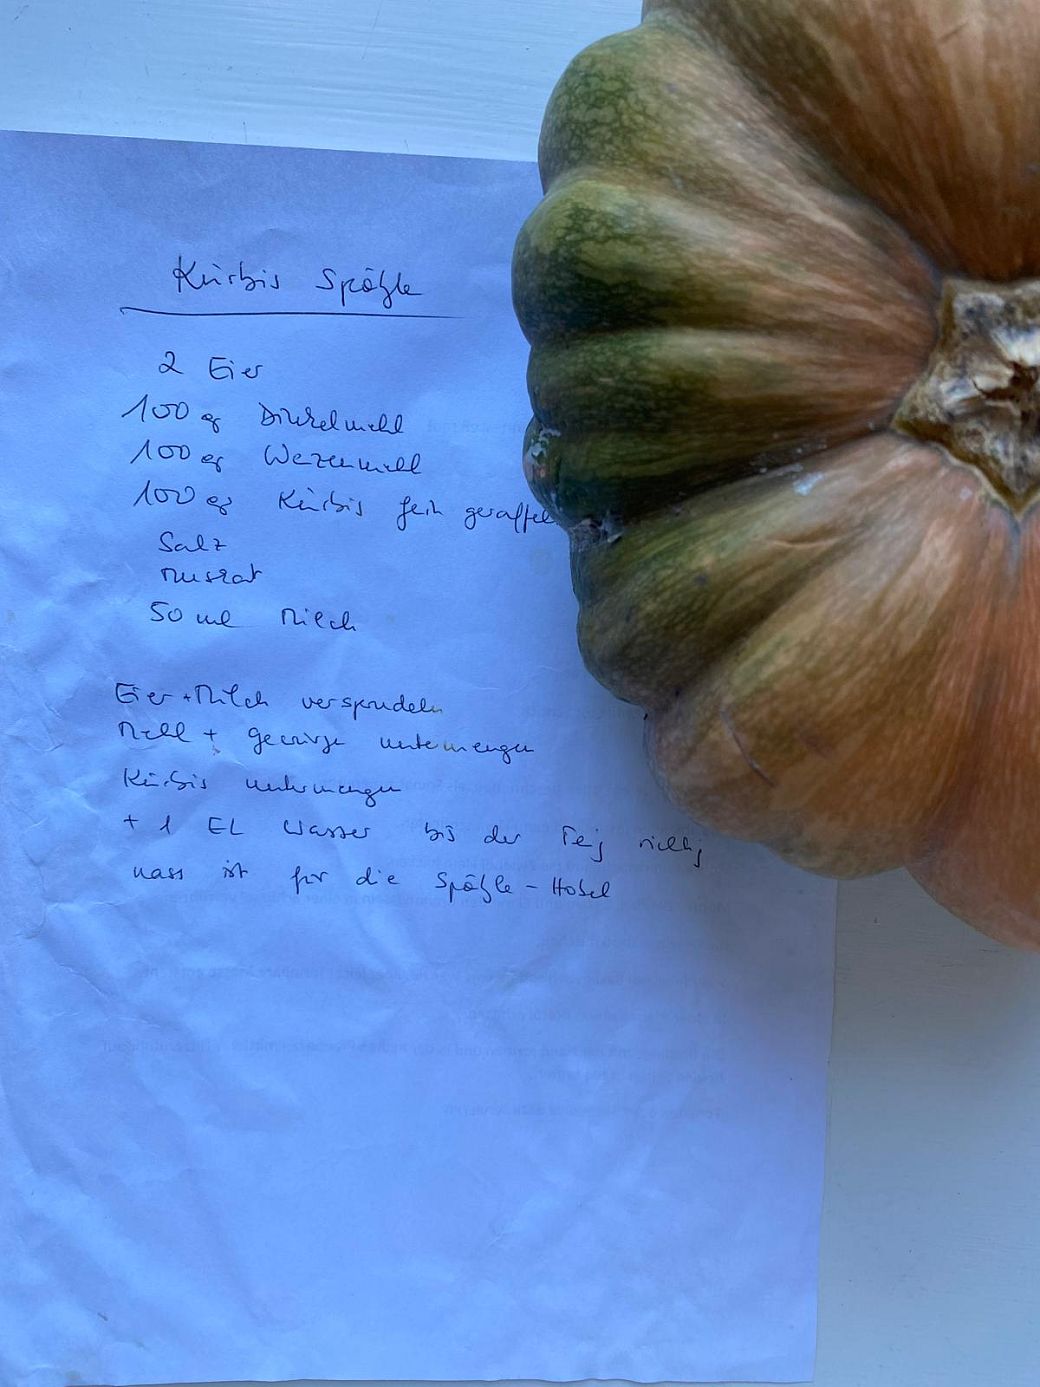 Kürbis Spätzle
2 Eier
100 g Dinkelmehl
100 g Weizenmehl
100 g Kürbis fein geraffel
Salz
Muskat
50 ml Milch
Eier + Milch versprudeln
Mehl + Gewürze untermengen
Kürbis untermengen
+ 1 EL Wasser bis der Teig richtig
nass ist für die Spätzle-Hobel